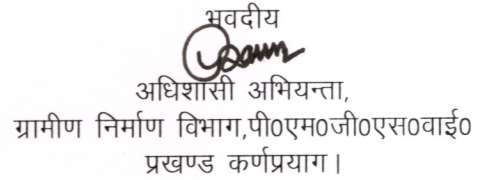 भवदीय
अधिशासी अभियन्ता,
ग्रामीण निर्माण विभाग,पी0एम0जी0एस0वाई0
प्रखण्ड कर्णप्रयाग।